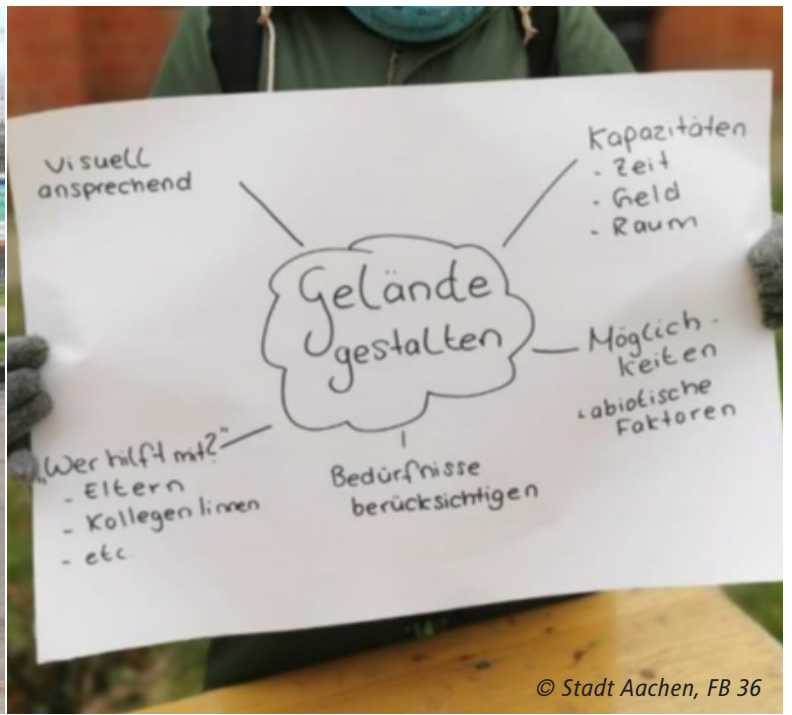 visuell
ansprechend
Kapazitäten
- Zeit
- Geld
- Raum
Gelände
gestalten
Möglich-
keiten
abiotische
Faktoren
"Wer hilft mit?"
- Eltern
- Kollegen|innen
- etc.
Bedürfnisse
berücksichtigen
© Stadt Aachen, FB 36